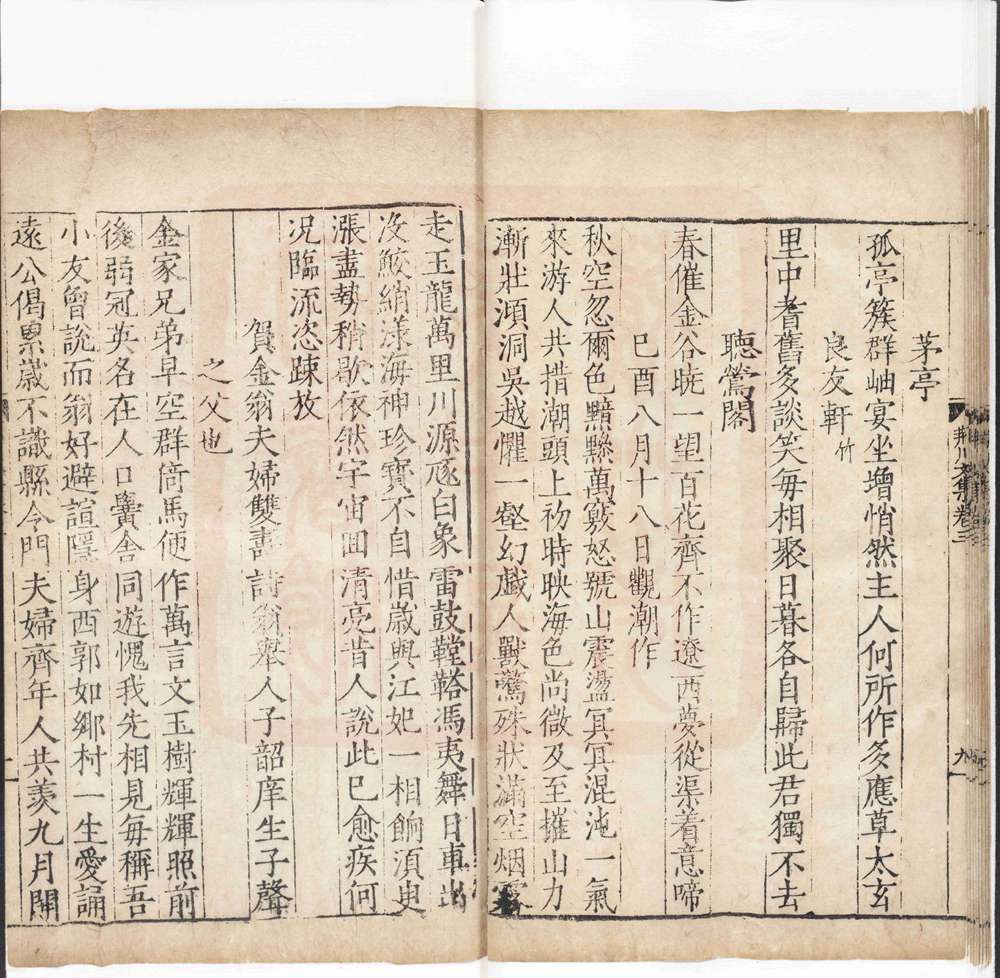 茅亭
孤亭簇群岫宴坐增悄然主人何所作多應草太玄
良友軒竹
里中耆舊多談笑每相聚日暮各自歸此君獨不去
聽鶯閣
春催金谷曉一望百花齊不作遼西夢從渠着意啼
巳酉八月十八日觀潮作
秋空忽爾色黯黲萬竅怒號山震盪冥冥混沌一氣
來游人共指潮頭上初時映海色尚微及至摧山力
漸壯澒洞吳越懼一壑幻戲人獸驚殊狀滿空烟霧
走玉龍萬里川源豗白象雷鼓鞺鞳馮夷舞日車出
没鮫綃漾海神珍寶不自惜歲與江妃一相餉須臾
漲盡勢稍歇依然宇宙囬清亮昔人說此巳愈疾何
况臨流恣踈放
賀金翁夫婦雙壽詩翁舉人子韶庠生子聲
之父也
金家兄弟早空群倚馬便作萬言文玉樹輝輝照前
後弱冠英名在人口黌舍同遊愧我先相見每稱吾
小友曾說而翁好避諠隱身西郭如鄉村一生愛誦
遠公偈累歲不識縣令門夫婦齊年人共羡九月開
荆川文集卷三
九